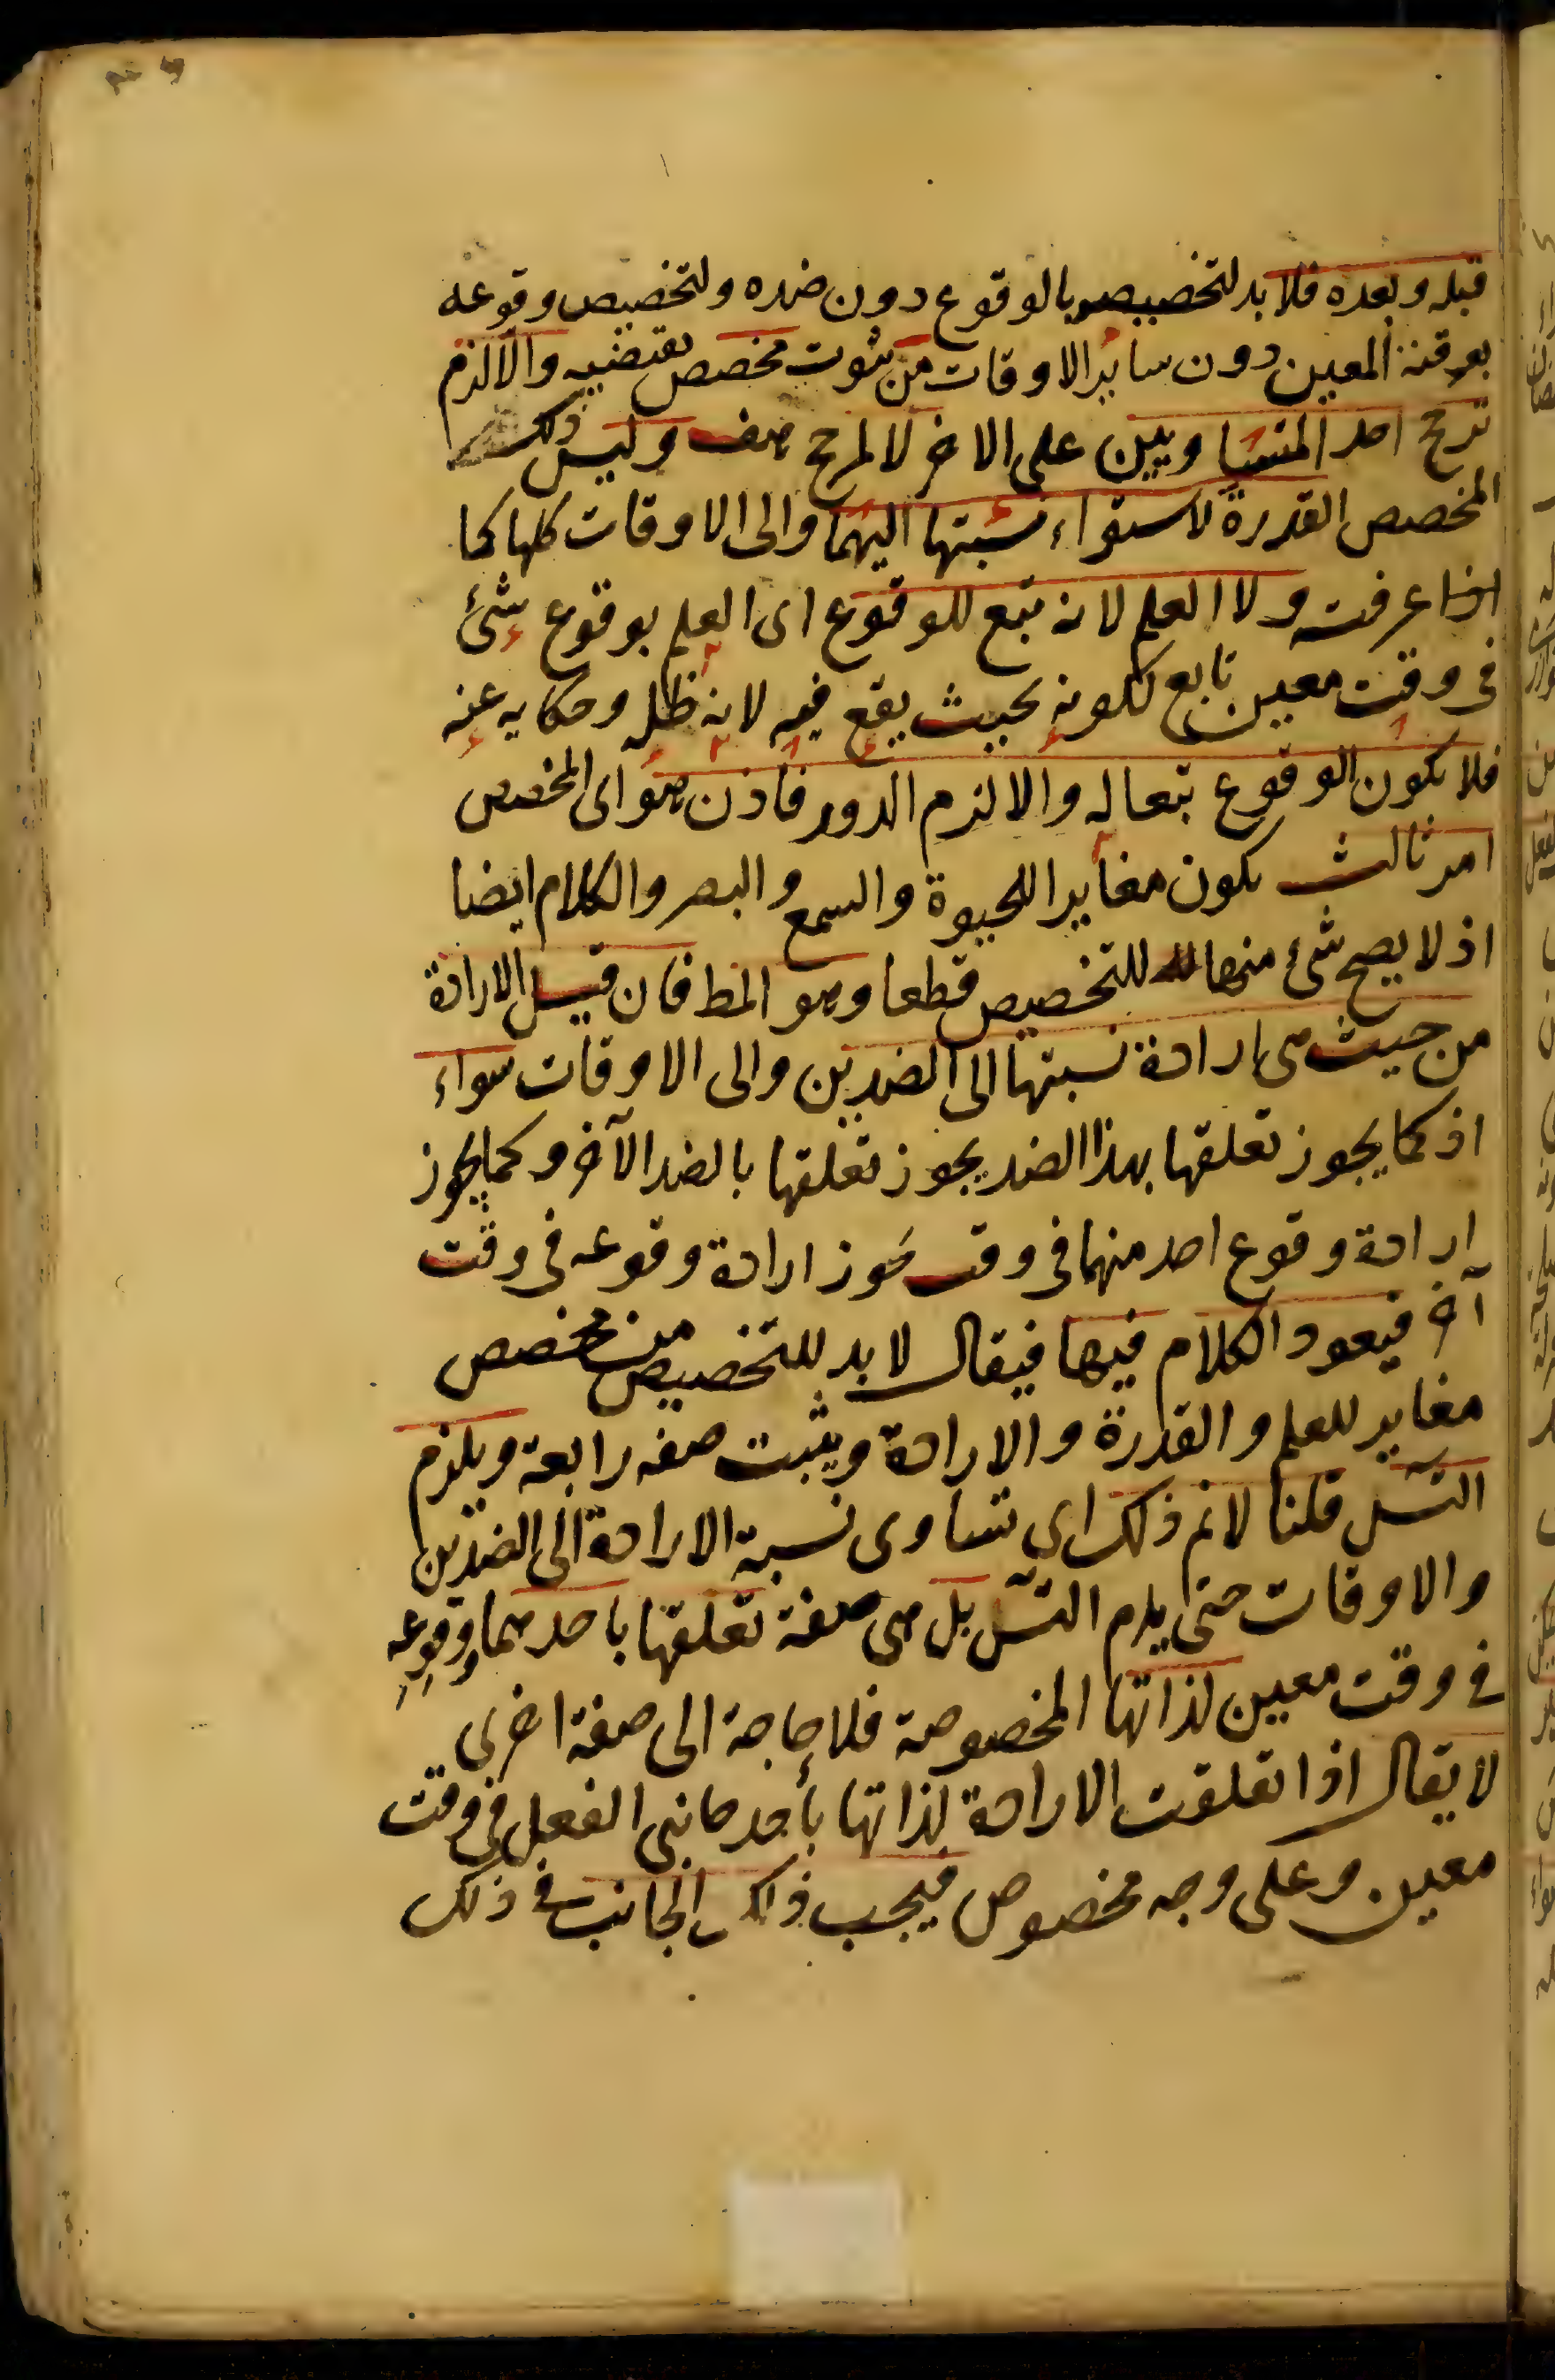 قبله وبعده فلا بد لتخصيصه بالوقوع دون ضده ولتخصيص وقوعه
بوقته المعين دون سائر الاوقات من ثبوت مخصص يقتضيه والا لزم
ترجح احد المتساويين على الاخر لا لمرجح هف وليس ذلك
المخصص القدرة لاستواء نسبتها اليهما والى الاوقات كلها كما
عرفت ولا العلم لانه تبع للوقوع اى العلم بوقوع شئ
فى وقت معين تابع لكونه بحيث يقع فيه لانه ظله وحكايه عنه
فلا يكون الوقوع تبعا له والا لزم الدور فاذن هو اى المخصص
امر ثالث يكون مغايرا للحيوة والسمع والبصر والكلام ايضا
اذ لا يصح شئ منها للتخصيص قطعا وهو المط فان قيل الارادة
من حيث هى ارادة نسبتها الى الضدين والى الاوقات سواء
اذ كما يجوز تعلقها بهذا الضد يجوز تعلقها بالضد الآخر وكما يجوز
ارادة وقوع احد منهما فى وقت يجوز ارادة وقوعه فى وقت
آخر فيعود الكلام فيها فيقال لا بد للتخصيص من مخصص
مغاير للعلم والقدرة والارادة ويثبت صفه رابعة ويلزم
التس قلنا لانم ذلك اى تساوى نسبة الارادة الى الضدين
والاوقات حتى يلزم التس بل هى صفة تعلقها باحدهما ووقوعه
فى وقت معين لذاتها المخصوصة فلا حاجة الى صفة اخرى
لا يقال اذا تعلقت الارادة لذاتها بأحد جانبى الفعل فى وقت
معين وعلى وجه مخصوص فيجب ذلك الجانب فى ذلك